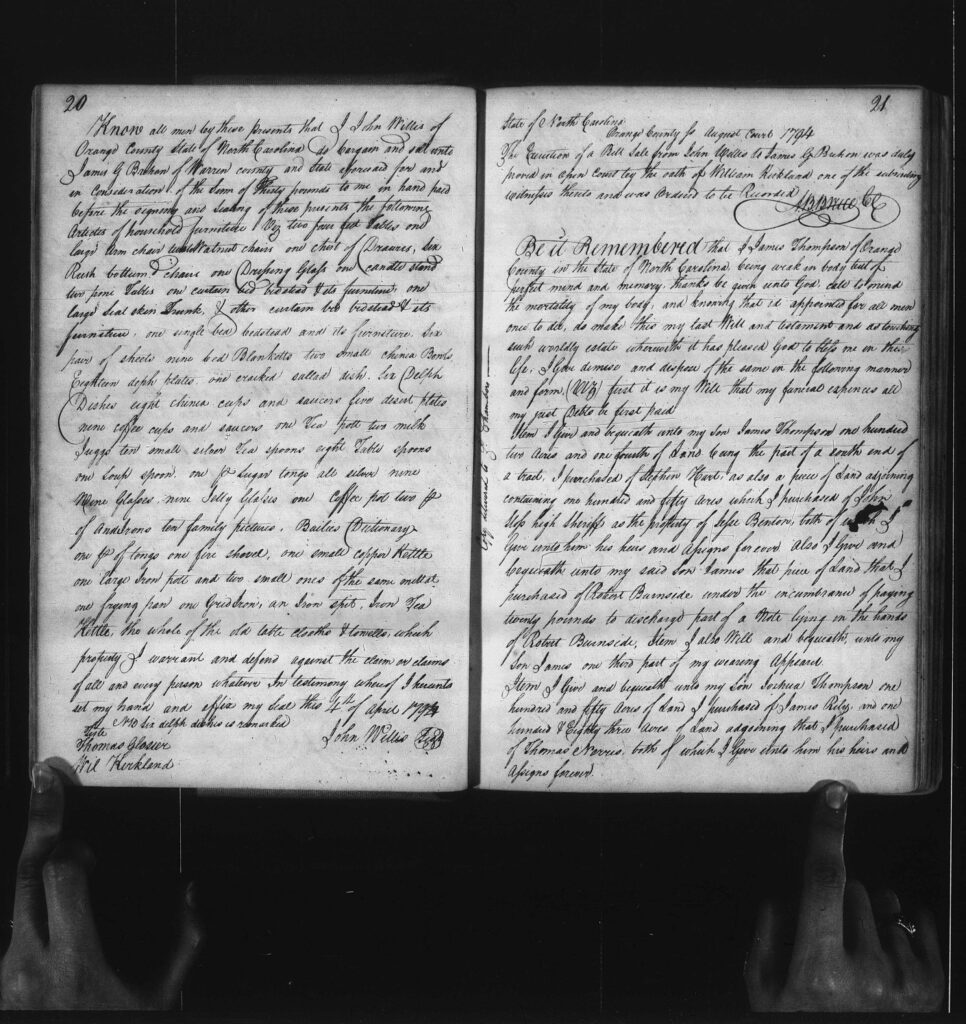 20
Know all men by these presents that I John Willis of
Orange County State of North Carolina do bargain and sale unto
James G Brehon of Warren county and State aforesaid for and
in Consideration of the Sum of Thirty pounds to me in hand paid
before the signing and Sealing of these presents the following
Articles of household furniture Viz two four feet Tables one
large Arm chair Walnut chairs one chest of Drawers, six
Rush bottum'd chairs one Dressing Glass one Candle stand
two pone Tables one curtain bed bedstead & its furniture, one
large Seal skin Trunk, & other curtain bed bedstead & its
furniture, one single bed bedstead and its furniture. Six
pair of sheets nine bed Blanketts two small chinea Bowls
Eighteen deph plates, one cracked sallad dish. Six Delph
Dishes eight chinea cups and saucers five desert plates
nine coffee cups and saucers one Tea pott two milk
Juggs ten small silver Tea spoons eight Table spoons
one Soup spoon. one pr Sugar tongs all silver nine
Wine Glasses, nine Jelly Glasses one Coffee pot two pr
of Andirons ten family pictures. Bailies Dictionary
one pr of tongs one fire shovel, one small copper Kettle
one large Iron pott and two small ones of the same mettal
one frying pan one Gridiron, an Iron spit, Iron Tea
Kittle, the whole of the old table cloaths & towells, which
property I warrant and defend against the claim or claims
of all and every person whatever In testimony whereof I hereunto
set my hand and affix my seal this 4th of April 1794
Teste NB Six delph dishes is remarked
Thomas Glosier John Willis Seal
Wil Kirkland
21
State of North Carolina
Orange County Ss August Court 1794
The Execution of a Bill Sale from John Willis to James G Brehon was duly
proved in open Court by the oath of William Kirkland one of the subscribing
witnesses thereto and was Ordered to be Recorded
A B Bruce CC
Be it Remembered that I James Thompson of Orange
County in the State of North Carolina being weak in body but of
perfect mind and memory, thanks be given unto God, calls to mind
the mortality of my body, and knowing that it appointed for all men
once to die, do make this my last Will and testament and as touching
such worldly estate wherewith it has pleased God to bless me in this
life. I Give demise and dispose of the same in the following manner
and form, (Viz) first it is my Will that my funeral expences all
my just Debts be first paid
Item I Give and bequeath unto my son James Thompson one hundred
two Acres and one fourth of Land being the part of a south end of
a tract, I purchased of Stephen Hart, as also a piece of Land adjoining
containing one hundred and fifty acres which I purchased of John
high sheriff as the property of Jesse Benton, both of which I
Give unto him his heirs and Assigns forever Also I Give and
bequeath unto my said Son James that piece of Land that I
purchased of Robert Burnside under the incumbrance of paying
twenty pounds to discharge part of a Note lying in the hands
of Robert Burnside, Item I also Will and bequeath unto my
Son James one third part of my wearing Apparel
Item I Give and bequeath unto my Son Joshua Thompson one
hundred and fifty Acres of Land I purchased of James Riley, and one
hundred & Eighty three Acres of Land adjoining that I purchased
of Thomas Norris, both of which I Give unto him his heirs and
Assigns forever.